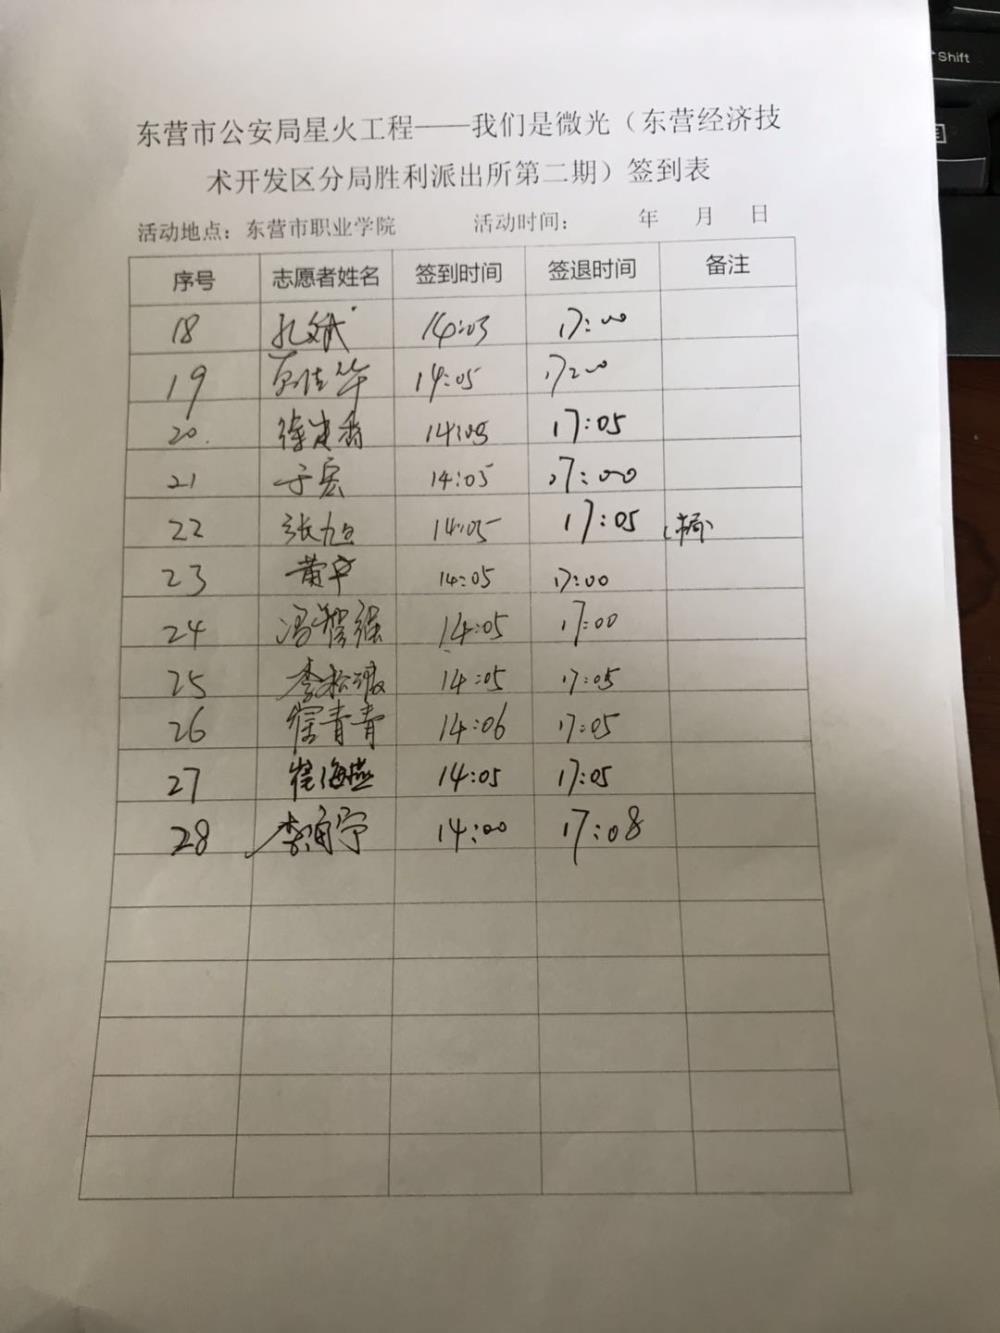 Shift
东营市公安局星火工程——我们是微光（东营经济技
术开发区分局胜利派出所第二期）签到表
活动地点：东营市职业学院 活动时间： 年 月 日
序号 志愿者姓名 签到时间 签退时间 备注
18 孔斌 14:03 17:00
19 14:05 17:00
20. 徐建香 14:05 17:05
21 于宏 14:05 17:00
22 张旭 14:05 17:05
23 黄平 14:05 17:00
24 冯智强 14:05 17:00
25 李松 14:05 17:05
26 青青 14:06 17:05
27 崔海燕 14:05 17:05
28 李海宁 14:00 17:08